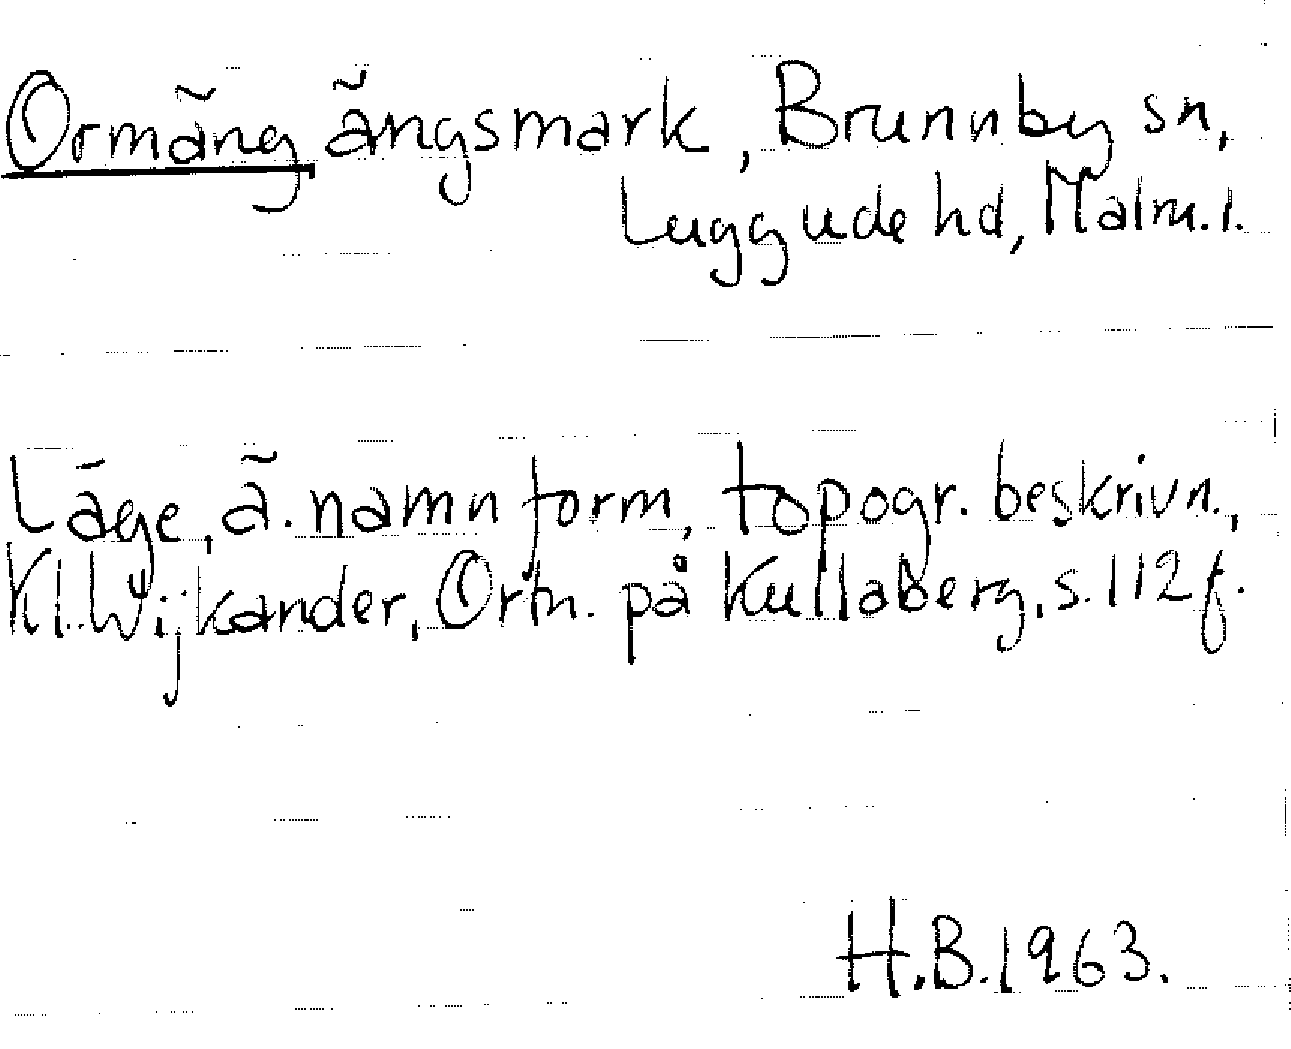 Ormäng ängsmark, Brunnby sn,
Luggude hd, Malm. l.
Läge, ä. namnform, topogr. beskrivn.,
Kl. Wijkander, Ortn. på Kullaberg, s. 112 f.
H.B. 1963.